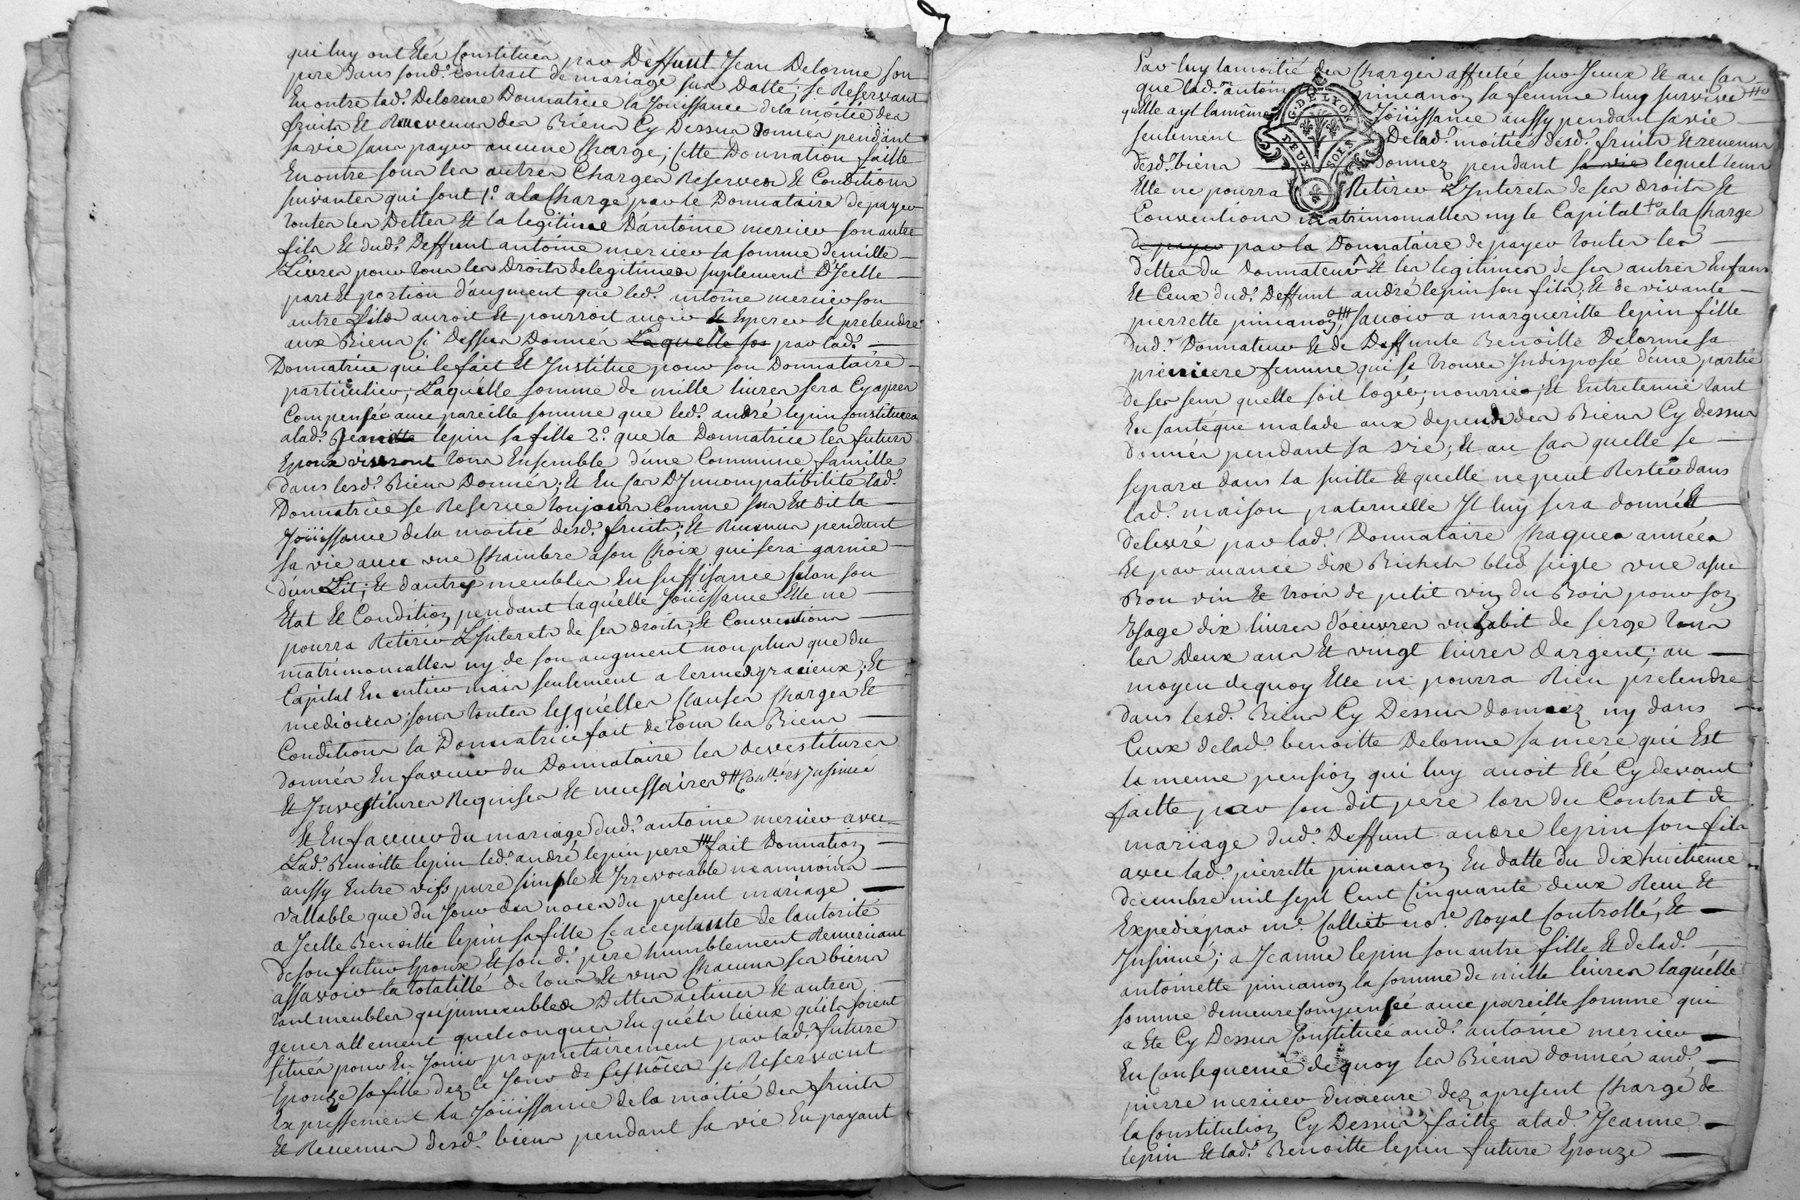 qui luy ont étés Constitués par Deffunt Jean Delorme son
pere dans sond.t Contrait de mariage sus Datté; se Reservant
En outre lad.e Delorme Donnatrice la Jouissance de la moitié des
fruits Et Revenus des Biens Cy Dessus donnés pendant
sa vie sans payer aucune Charge; Cette Donnation faitte
En outre sous les autres Charges Reserves Et Conditions
suivantes qui sont 1.o a la Charge par le Donnataire de payer
toutes les Dettes Et la legitime D'antoine mercier son autre
fils Et dud.t Deffunt antoine mercier la somme de mille
Livres pour tous les droits de legitimes suplement D'Icelle
part Et portion d'augment que led.t antoine mercier son
autre fils auroit Et pourroit avoir Et Esperer Et pretendre
aux Biens Cy Dessus Donnés Laquelle so par lad.e
Donnatrice qui le fait Et Institue pour son Donnataire
particulier; Laquelle somme de mille livres sera Cy apres
Compensée avec pareille somme que led.t andré lepin Constituera
a lad.e Jeanne lepin sa fille 2.o que la Donnatrice les futurs
Epoux viveront tous Ensemble d'une Commune famille
dans lesd.ts Biens Donnés; Et En Cas D'Incompatibilité lad.e
Donnatrice se Reserve toujours Comme sus Est dit la
Jouissance de la moitié desd.ts fruits; Et Revenus pendant
sa vie avec une Chambre a son Choix qui sera garnie
d'un Lit; Et d'autres meubles En suffisance selon son
Etat Et Condition pendant laquelle Jouissance Elle ne
pourra Retirer L'Interets de ses droits, Et Conventions
matrimonialles ny de son augment non plus que du
Capital En entier mais seulement a termes gracieux; Et
mediocres; sous toutes lesquelles Clauses Charges Et
Conditions la Donnatrice fait de tous les Biens
donnés En faveur du Donnataire les devestitures
Et Investitures Requises Et necessaires # Insinué
Et En faveur du mariage dud.t antoine mercier avec
Lad.e Benoitte lepin led.t andré lepin pere ## fait Donnation
aussy Entre vifs pure simple Et Irrevocable neanmoins
vallable que du Jour des noces du present mariage
a Icelle Benoitte lepin sa fille Ce acceptante de l'autorité
de son futur Epoux Et son d.t pere humblement Remerciant
assavoir la totalité de tous Et uns Chacuns ses biens
tant meubles qu'jmmeubles Dettes actives Et autres
generallement quelconques En quels lieux qu'ils soient
situés pour En Jouir proprietairement par lad.e future
Epouze sa fille dez le Jour de ses nôces se Reservant
Expressement la Jouissance de la moitié des fruits
Et Revenus desd.ts biens pendant sa vie En payant
Par luy la moitié des Charges affectée sur Jceux Et au Cas
que lad.e antoinette pinçanon sa femme luy survive
qu'elle ayt la même Jouissance aussy pendant sa vie
seulement De lad.e moitiée desd.ts fruits Et revenus
desd.ts biens Donnez pendant sa vie lequel tems
Elle ne pourra Retirer L'Interets de ses droits Et
Conventions matrimonialles ny le Capital a la Charge
de payer par la Donnataire de payer toutes les
dettes du Donnateur Et les legitimes de ses autres Enfans
Et Ceux dud.t Deffunt andré lepin son fils; Et de vivante
pierrette pinçanon, ### sauoir a marguerite lepin fille
dud.t Donnateur Et de Deffunte Benoitte Delorme sa
premiere femme qui se trouve Indisposée d'une partie
de ses sens quelle soit logée; nourrie; Et Entretenue tant
En santé que malade aux depends des Biens Cy dessus
donnés pendant sa vie; Et au Cas quelle se
separa dans la suitte Et quelle ne peut Rester dans
lad.e maison paternelle Jl luy sera donné Et
delivré par lad.e Donnataire Chaques années
Et par avance dix Bichets bled seigle une asnée
Bon vin Et trois de petit vin du Bois pour son
Usage dix livres d'oeuvres un habit de serge tous
les Deux ans Et vingt livres d'argent; au
moyen de quoy Elle ne pourra Rien pretendre
dans lesd.ts Biens Cy Dessus donnez ny dans
Ceux de lad.e benoitte Delorme sa mere qui Est
la meme pension qui luy avoit Eté Cy devant
faitte par son dit pere lors du Contrat de
mariage dud.t Deffunt andré lepin son fils
avec lad.e pierrette pinçanon En datte du dix huitième
decembre mil sept Cent Cinquante deux Recu Et
Expedié par m.e Calliet no.re Royal Controllé, Et
Insinué; a Jeanne lepin son autre fille Et de lad.e
antoinette pinçanon la somme de mille livres laquelle
somme demeure Compensée avec pareille somme qui
a Eté Cy Dessus Constituée aud.t antoine mercier
En Consequence de quoy les Biens donnés aud.t
pierre mercier demeure dez apresent Chargé de
la Constitution Cy Dessus faitte a lad.e Jeanne
lepin Et lad.e Benoitte lepin future Epouze
G. DE LYON
DEUX SOLS